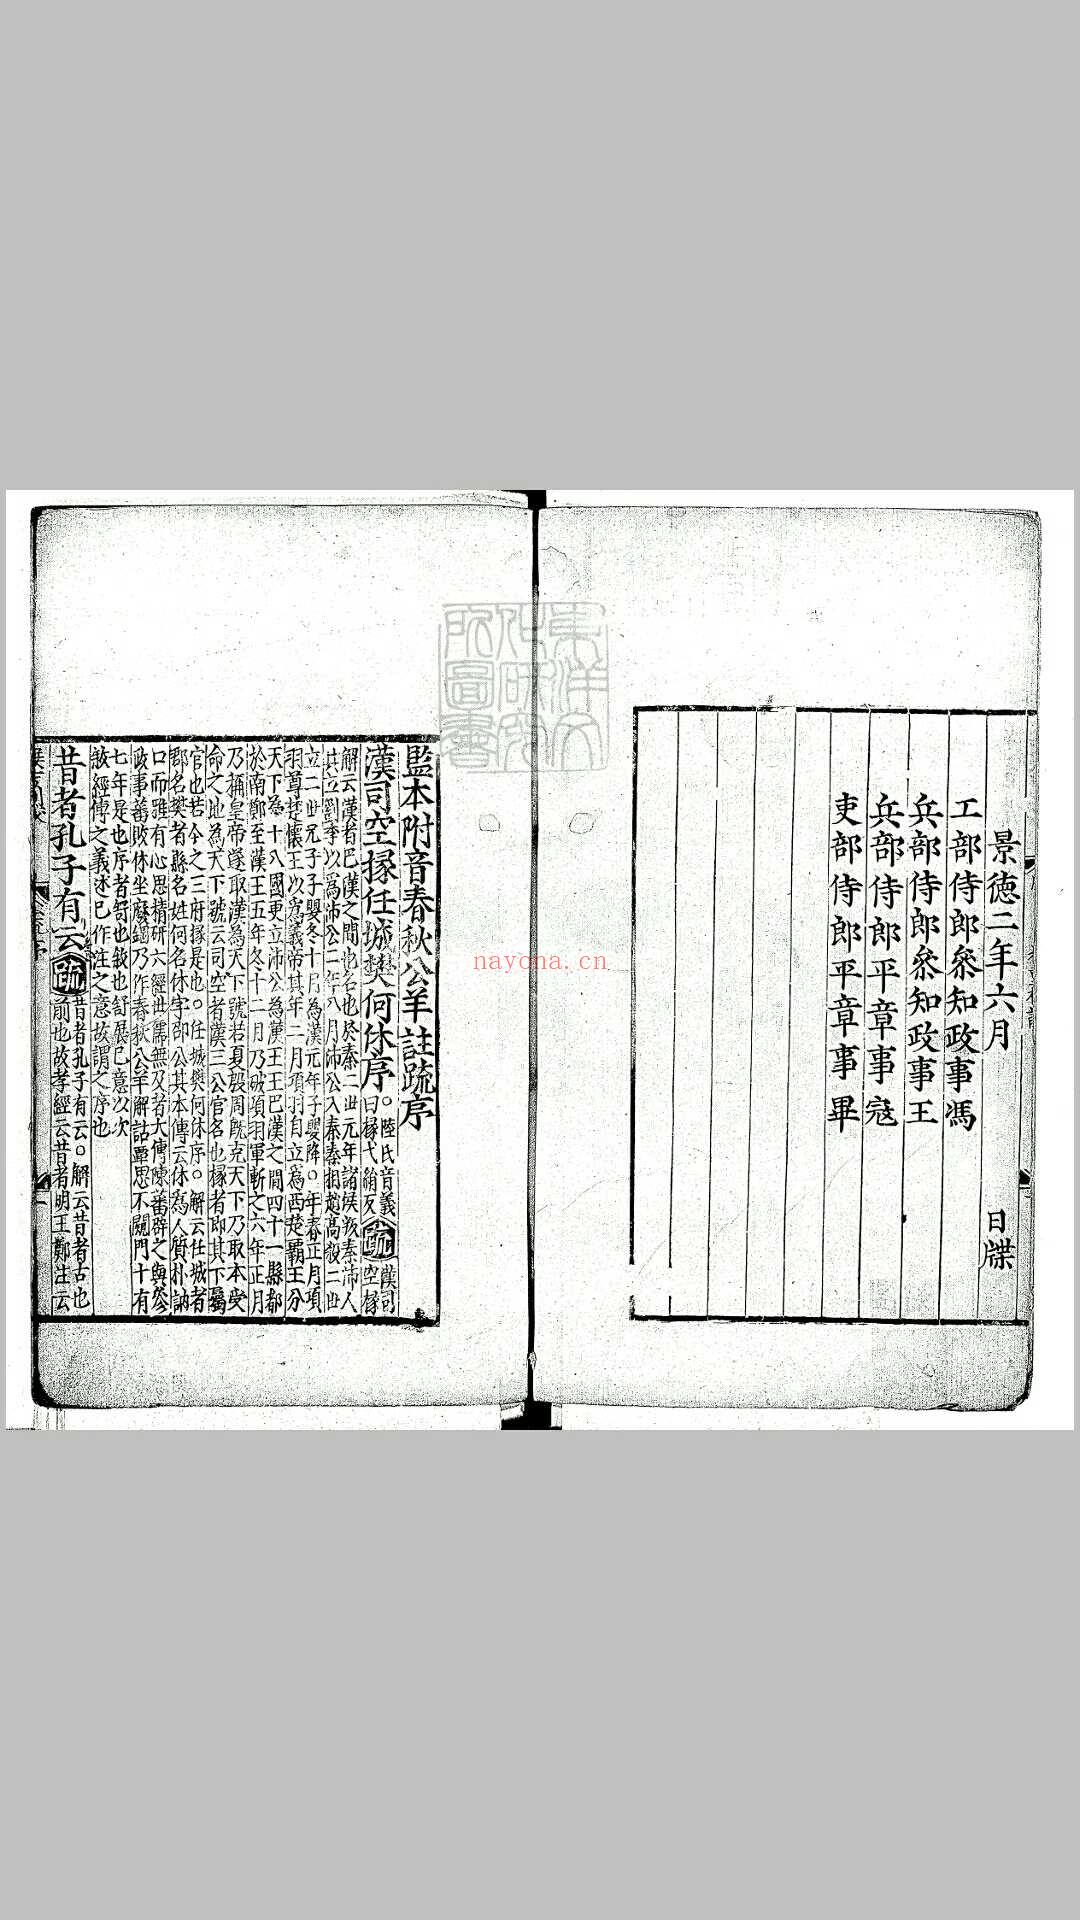 景德二年六月　　　日牒
工部侍郎叅知政事馮
兵部侍郎叅知政事王
兵部侍郎平章事寇
吏部侍郎平章事畢
監本附音春秋公羊註疏序
漢司空掾任城樊何休序○陸氏音義曰掾弋絹反疏漢司空掾
解云漢者巴漢之間地名也於秦二世元年諸侯叛秦沛人
共立劉季以爲沛公二年八月沛公入秦秦相趙高殺二世
立二世兄子子嬰冬十月爲漢元年子嬰降○年春正月項
羽尊楚懷王以爲義帝其年二月項羽自立爲西楚霸王分
天下爲十八國更立沛公爲漢王王巴漢之間四十一縣都
於南鄭至漢王五年冬十二月乃破項羽軍斬之六年正月
乃稱皇帝遂取漢爲天下號若夏殷周旣克天下乃取本受
命之地爲天下號云司空者漢三公官名也掾者即其下屬
官也若今之三府掾是也○任城樊何休序○解云任城者
郡名樊者縣名姓何名休字邵公其本傳云休爲人質朴訥
口而雅有心思精研六經世儒無及者大傅陳蕃辟之與參
政事蕃敗休坐廢錮乃作春秋公羊解詁覃思不闚門十有
七年是也序者舒也叙也舒展已意次次
敘經傳之義述已作注之意故謂之序也
昔者孔子有云疏昔者孔子有云○解云昔者古也
前也故孝經云昔者明王鄭注云
東洋文化研究所圖書
nayona.cn